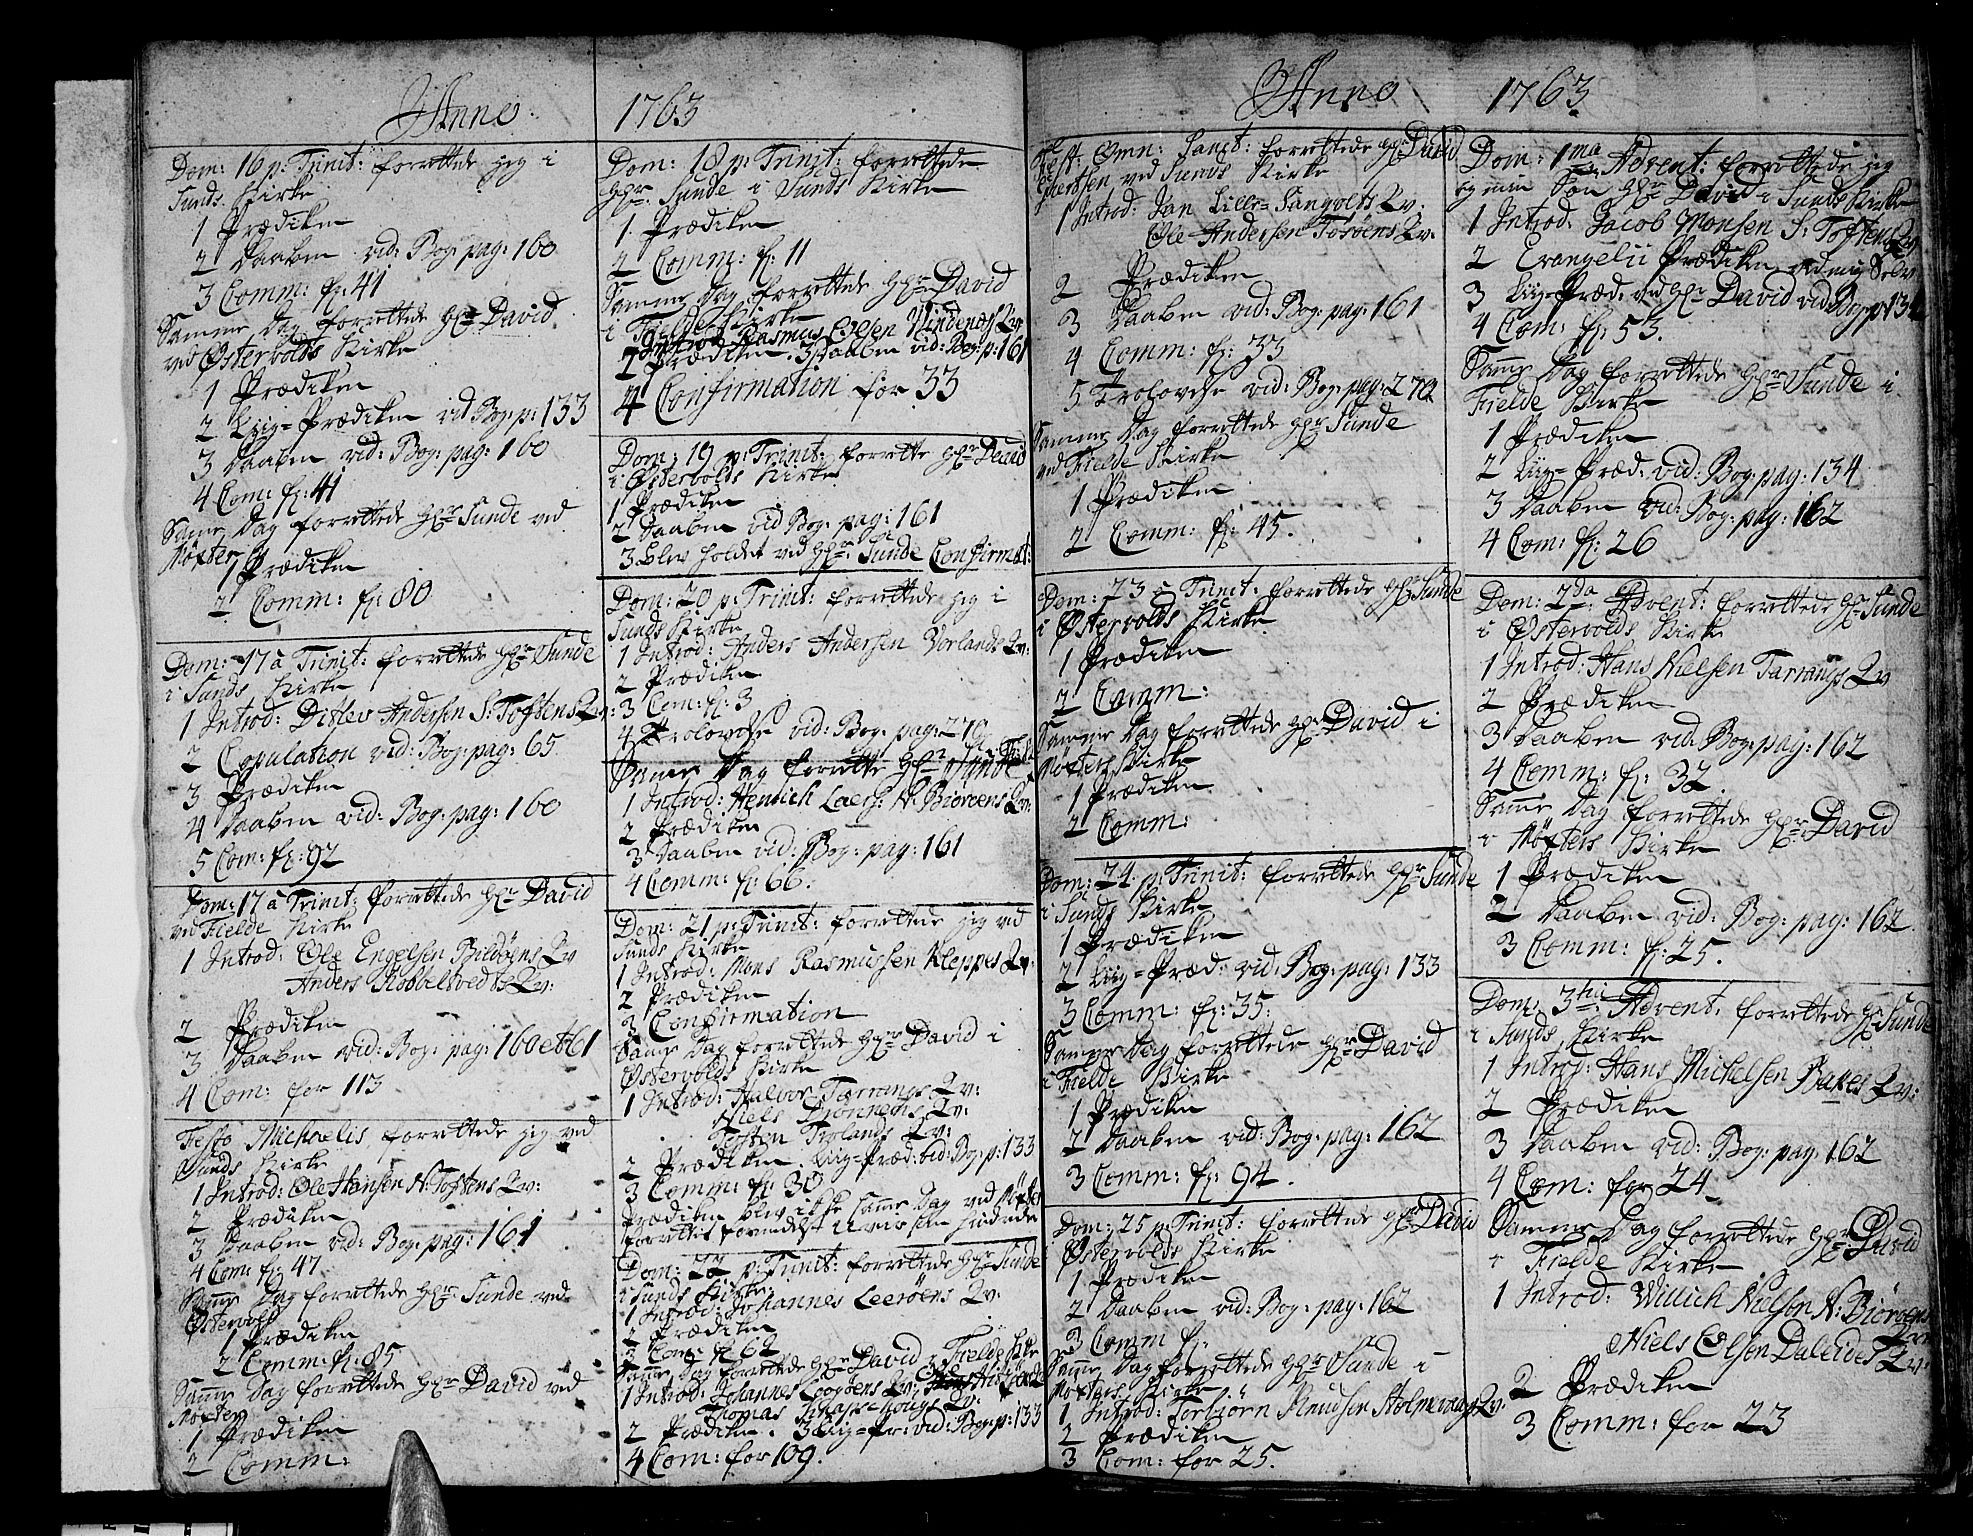 Anno 1763
Dom: 16 p: Trinit: forrettede jeg i
Sunds Kirke
1 Prædiken
2 Daaben vid: Bog: pag: 160
3 Comm: f: 41
Samme Dag forrettede Hr. David
ved Østervolds Kirke
1 Prædiken
2 Liig-Prædiken vid Bog: p: 133
3 Daaben vid: Bog: pag: 160
4 Com: f: 41
Same Dag forrettede Hr. Sunde ved
Møxter
1 Prædiken
2 Comm: f: 80
Dom: 17 a Trinit: forrettede Hr. Sunde
i Sunds Kirke
1 Introd: Ditlev Andersen S: Toftens Qv:
2 Copulation vid: Bog: pag: 65
3 Prædiken
4 Daaben vid: Bog: pag: 160
5 Com: f: 92
Dom: 17 a Trinit: forrettede Hr. David
ved Fielde Kirke
1 Introd: Ole Engelsen Bildöens Qv
Anders Kobbeltvedts Qv:
2 Prædiken
3 Daaben vid: Bog: pag: 160 et 61
4 Com: for 113
Festo Michaelis forrettede jeg ved
Sunds Kirke
1 Introd: Ole Hansen N: Toftens Qv:
2 Prædiken
3 Daaben vid: Bog: pag: 161
4 Com: f: 47
Same Dag forrettede Hr. Sunde ved
Østervold
1 Prædiken
2 Comm: f: 85
Same Dag forrettede Hr. David ved
Møxter
1 Prædiken
2 Comm:
Dom: 18 p: Trinit: forrettede
Hr. Sunde i Sunds Kirke
1 Prædiken
2 Comm: f: 11
Samme Dag forrettede Hr. David
i Fielde Kirke
1 Introd: Rasmus Olsen Vindenæs Qv
2 Prædiken. 3 Daaben vid: Bog: p: 161
4 Confirmation for 33
Dom: 19 p: Trinit: forrette Hr. David
i Østervolds Kirke
1 Prædiken
2 Daaben vid Bog: pag: 161
3 Blev holdet ved Hr. Sunde Confirmat:
Dom: 20 p: Trinit: forrettede jeg i
Sunds Kirke
1 Introd: Anders Andersen Vorlands Qv:
2 Prædiken
3 Com: f: 3
4 Trolovelse vid: Bog: pag: 270
Same Dag forrette Hr. Sunde
1 Introd: Henrich Laers: N: Biöröens Qv:
2 Prædiken
3 Daaben vid: Bog: pag: 161
4 Comm: f: 66.
Dom: 21 p: Trinit: forrettede jeg ved
Sunds Kirke
1 Introd: Mons Rasmussen Kleppes Qv:
2 Prædiken
3 Confirmation
Same Dag forrettede Hr. David i
Østervolds Kirke
1 Introd: Halvor Tarrangs Qv:
Niels Qv:
Tosten Trolands Qv:
2 Prædiken. Liig-Præd: vid: Bog: p: 133
3 Comm: f: 30
Prædiken blev ikke same Dag ved Møxter
forrettet formedelst som hindrede
Dom: 22 p: Trinit: forrettede Hr. Sunde
i Sunds Kirke
1 Introd: Johannes Leeröens Qv:
2 Prædiken
3 Com: f: 62
Same Dag forrettede Hr. David i Fielde Kirke
1 Introd: Johannes Qv:
Thomas Qv:
2 Prædiken. 3 Liig-Pr: vid: Bog: p: 133
4 Com: for 109.
Anno 1763
Fest: Omn: Sanct: forrettede Hr. David
ved Sunds Kirke
1 Introd: Jan Lille-Sangolts Qv:
Ole Andersen Tosöens Qv:
2 Prædiken
3 Daaben vid: Bog: pag: 161
4 Comm: f: 33
5 Trolovelse vid: Bog: pag: 270
Samme Dag forrettede Hr. Sunde
ved Fielde Kirke
1 Prædiken
2 Comm: f: 45.
Dom: 23 a Trinit: forrettede Hr. Sunde
i Østervolds Kirke
1 Prædiken
2 Comm:
Samme Dag forrettede Hr. David i
Møxters Kirke
1 Prædiken
2 Comm:
Dom: 24 p: Trinit: forrettede Hr. Sunde
i Sunds Kirke
1 Prædiken
2 Liig-Præd: vid: Bog: pag: 133
3 Comm: f: 35:
Samme Dag forrettede Hr. David
i Fielde Kirke
1 Prædiken
2 Daaben vid: Bog: pag: 162
3 Comm: f: 94.
Dom: 25 p: Trinit: forrettede Hr. David
i Østervolds Kirke
1 Prædiken
2 Daaben vid: Bog: pag: 162
3 Comm f:
Same Dag forrettede Hr. Sunde i
Møxters Kirke
1 Introd: Torbjörn Knudsen Stolmevaags Qv:
2 Prædiken
3 Com: for 25.
Dom: 1ma Advent: forrettede jeg
og min Søn Hr. David i Sunds Kirke
1 Introd: Jacob Monsen S: Toftens Qv
2 Evangelii Prædiken ved mig Selv
3 Liig-Præd: ved Hr. David vid Bog: p: 134
4 Com: f: 53.
Same Dag forrettede Hr. Sunde i
Fielde Kirke
1 Prædiken
2 Liig-Præd: vid: Bog: pag: 134
3 Daaben vid: Bog: pag: 162
4 Com: f: 26
Dom: 2da Advent: forrettede Hr. Sunde
i Østervolds Kirke
1 Introd: Hans Nielsen Tarrangs Qv
2 Prædiken
3 Daaben vid: Bog: pag: 162
4 Comm: f: 32
Same Dag forrettede Hr. David
i Møxters Kirke
1 Prædiken
2 Daaben vid: Bog: pag: 162
3 Comm: f: 25.
Dom: 3tia Advent: forrettede Hr. Sunde
i Sunds Kirke
1 Introd: Hans Michelsen Bakes Qv:
2 Prædiken
3 Daaben vid: Bog: pag: 162
4 Com: for 24
Samme Dag forrettede Hr. David
i Fielde Kirke
1 Introd: Willich Nielsen N: Biöröens
Qv:
Niels Olsen Daleides Qv:
2 Prædiken
3 Comm: for 23